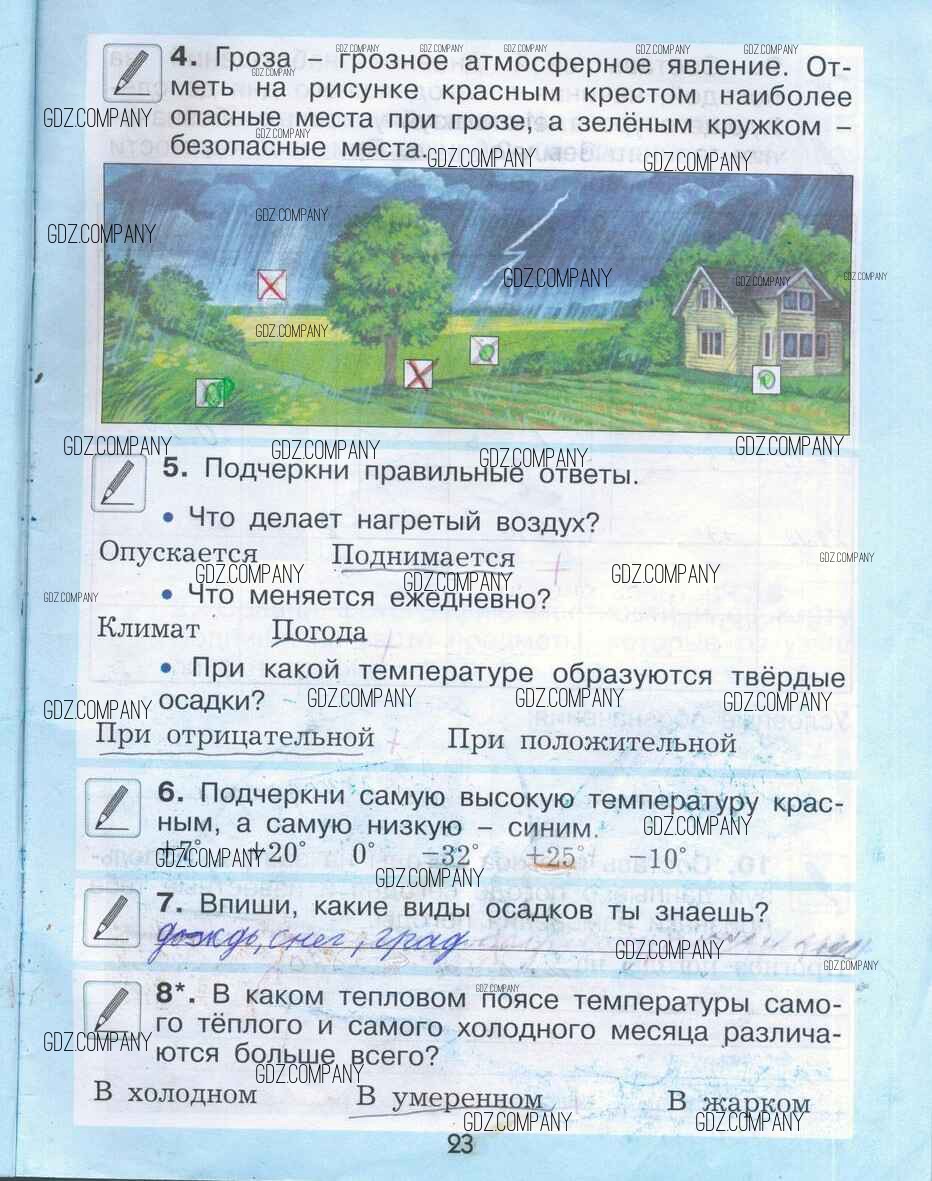 4. Гроза – грозное атмосферное явление. От-
меть на рисунке красным крестом наиболее
опасные места при грозе, а зелёным кружком –
безопасные места.
5. Подчеркни правильные ответы.
• Что делает нагретый воздух?
Опускается Поднимается
• Что меняется ежедневно?
Климат Погода
• При какой температуре образуются твёрдые
осадки?
При отрицательной При положительной
6. Подчеркни самую высокую температуру крас-
ным, а самую низкую – синим.
+7° +20° 0° −32° +25° −10°
7. Впиши, какие виды осадков ты знаешь?
дождь, снег, град
8*. В каком тепловом поясе температуры само-
го тёплого и самого холодного месяца различа-
ются больше всего?
В холодном В умеренном В жарком
23
GDZ.COMPANY